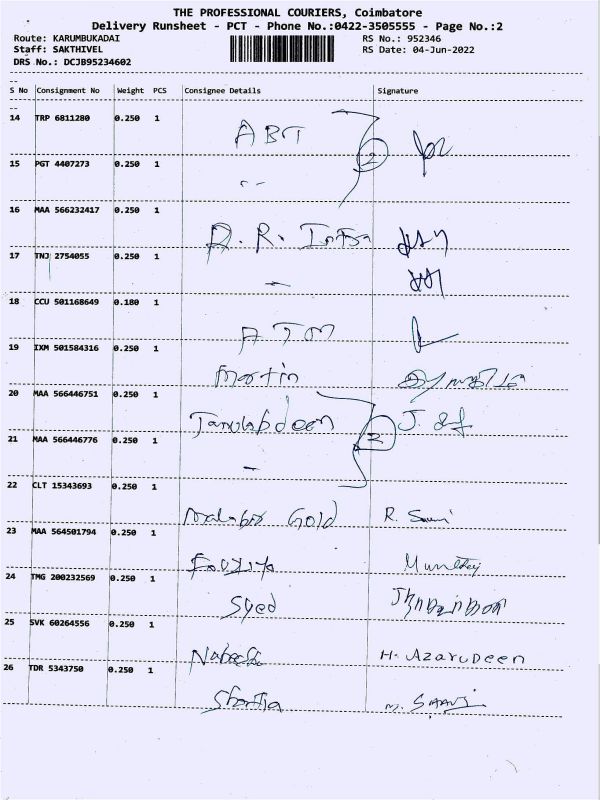 THE PROFESSIONAL COURIERS, Coimbatore
Delivery Runsheet - PCT - Phone No.:0422-3505555 - Page No.:2
Route: KARUMBUKADAI RS No.: 952346
Staff: SAKTHIVEL RS Date: 04-Jun-2022
DRS No.: DCJB95234602
S No Consignment No Weight PCS Consignee Details Signature
14 TRP 6811280 0.250 1
ABT
2
15 PGT 4407273 0.250 1
16 MAA 566232417 0.250 1
A.R. Infra
17 TNJ 2754055 0.250 1
18 CCU 501168649 0.180 1
ATM
19 IXM 501584316 0.250 1
Martin
20 MAA 566446751 0.250 1
J.
2
21 MAA 566446776 0.250 1
22 CLT 15343693 0.250 1
Malabar Gold R.
23 MAA 564501794 0.250 1
Fouziya
24 TMG 200232569 0.250 1
Syed
25 SVK 60264556 0.250 1
H. AZARUDEEN
26 TDR 5343750 0.250 1
M.